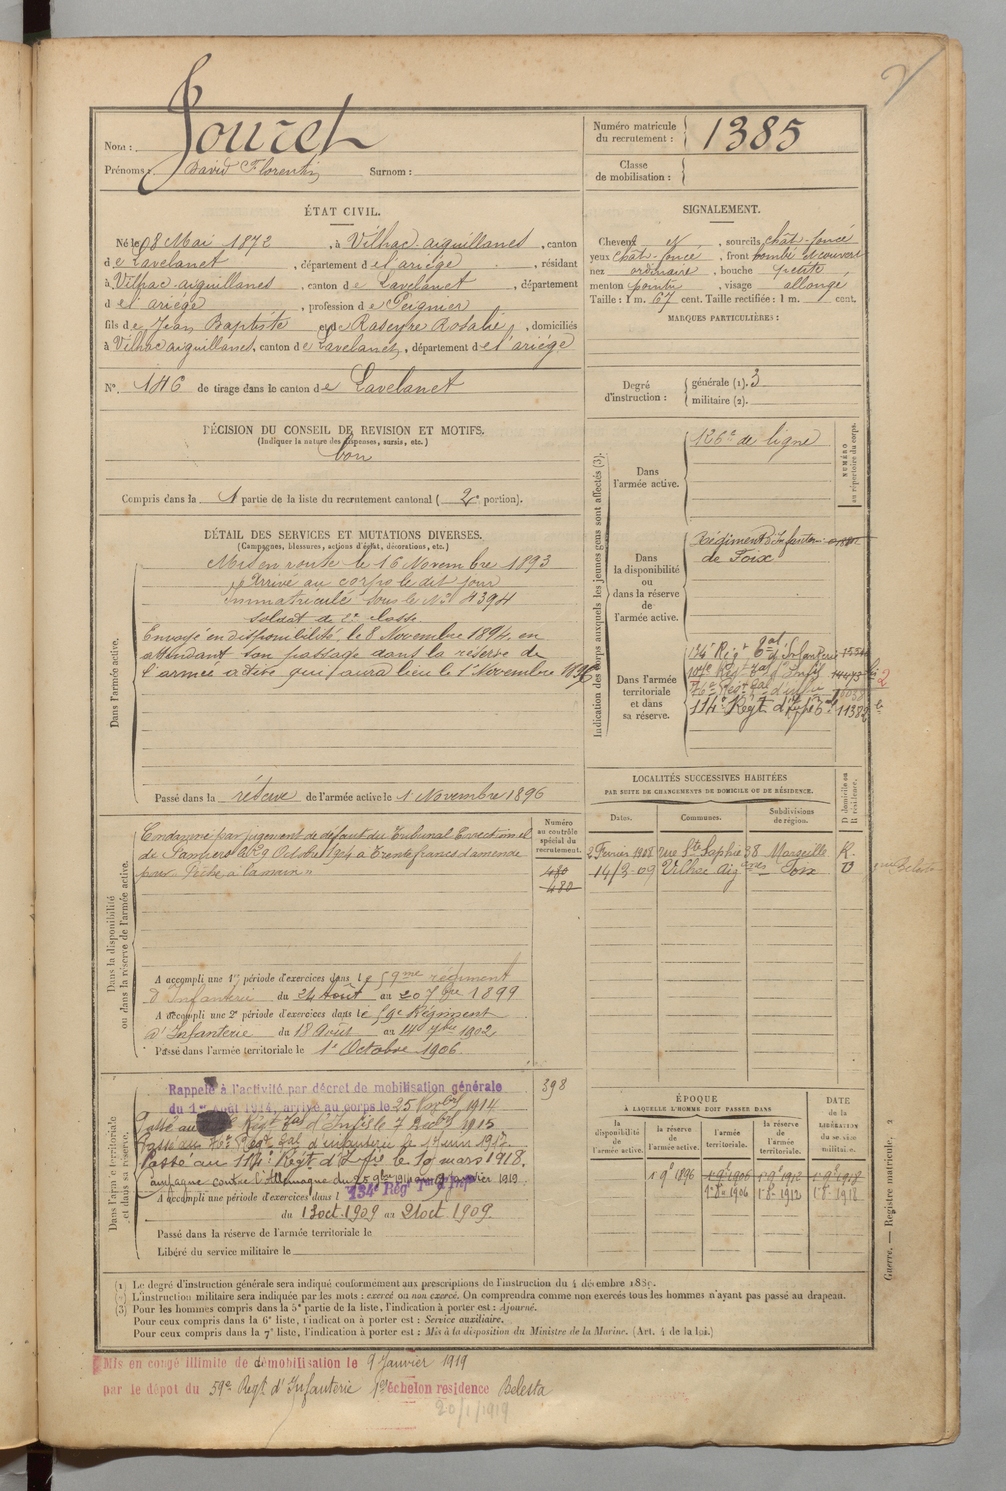 Nom : Jouret
Prénoms : David Florentin Surnom :
Numéro matricule du recrutement : 1385
Classe de mobilisation :
ÉTAT CIVIL.
Né le 8 Mai 1872, à Vilhac-aiguillanes, canton
de Lavelanet, département de l'ariège, résidant
à Vilhac-aiguillanes, canton de Lavelanet, département
de l'ariège, profession de Peignier
fils de Jean Baptiste et de Raseyre Rosalie, domiciliés
à Vilhac aiguillanes, canton de Lavelanet, département de l'ariège
N° 146 de tirage dans le canton de Lavelanet
SIGNALEMENT.
Cheveux et, sourcils chât-foncé
yeux chât-foncé, front bombé et couvert
nez ordinaire, bouche petite
menton pointu, visage allongé
Taille : 1 m. 67 cent. Taille rectifiée : 1 m. cent.
MARQUES PARTICULIÈRES :
Degré d'instruction : générale (1). 3
militaire (2).
DÉCISION DU CONSEIL DE REVISION ET MOTIFS.
(Indiquer la nature des dispenses, sursis, etc.)
bon
Compris dans la 1 partie de la liste du recrutement cantonal (2e portion).
DÉTAIL DES SERVICES ET MUTATIONS DIVERSES.
(Campagnes, blessures, actions d'éclat, décorations, etc.)
Dans l'armée active.
Mis en route le 16 Novembre 1893
Arrivé au corps le dit jour
Immatriculé sous le N° 4394
soldat de 2e classe
Envoyé en disponibilité, le 8 Novembre 1894, en
attendant son passage dans la réserve de
l'armée active qui aura lieu le 1er Novembre 1896
Passé dans la réserve de l'armée active le 1 Novembre 1896
Indication des corps auxquels les jeunes gens sont affectés (3).
NUMÉRO au répertoire du corps.
Dans l'armée active.
126e de ligne
Dans la disponibilité ou dans la réserve de l'armée active.
Régiment d'Infanterie
de Foix
Dans l'armée territoriale et dans sa réserve.
134e Régt Tal d'Infanterie
Régt Tal d'Infie
76e Régt Tal d'Infie
114e Régt d'Infie 11382
LOCALITÉS SUCCESSIVES HABITÉES
PAR SUITE DE CHANGEMENTS DE DOMICILE OU DE RÉSIDENCE.
Dates. Communes. Subdivisions de région. D domicile ou R résidence.
2 Février 1908 rue Ste Sophie 38 Marseille R
14/3-09 Vilhac Aig anes Foix D
Dans la disponibilité ou dans la réserve de l'armée active.
Numéro au contrôle spécial du recrutement.
480
480
Condamné par jugement de défaut du Tribunal Correctionnel
de Pamiers du 29 Octobre 1904 à Trente francs d'amende
pour "Pêche à la main"
A accompli une 1re période d'exercices dans le 59me régiment
d'Infanterie du 24 Août au 20 7bre 1899
A accompli une 2e période d'exercices dans le 59e Régiment
d'Infanterie du 18 Août au 14 7bre 1902
Passé dans l'armée territoriale le 1er Octobre 1906
Dans l'armée territoriale et dans sa réserve.
398
Rappelé à l'activité par décret de mobilisation générale
du 1er Août 1914, arrivé au corps le 25 Novbre 1914
Passé au Régt Tal d'Infie le 7 Decbre 1915
Passé au 76e Régt Tal d'infanterie le 1 Juin 1917
Passé au 114e Régt d'Infie le 10 mars 1918.
Campagne contre l'Allemagne du 25 9bre 1914 au 9 Janvier 1919
A accompli une période d'exercices dans l 134e Régt Tal d'Infie
du 13 oct. 1909 au 21 oct 1909.
Passé dans la réserve de l'armée territoriale le
Libéré du service militaire le
ÉPOQUE
À LAQUELLE L'HOMME DOIT PASSER DANS
la disponibilité de l'armée active. la réserve de l'armée active. l'armée territoriale. la réserve de l'armée territoriale. DATE de la LIBÉRATION du service militaire.
1 9e 1896 1 9e 1906 1 9e 1912 1 9e 1918
1-8e 1906 1-8e 1912 1-8e 1918
(1) Le degré d'instruction générale sera indiqué conformément aux prescriptions de l'instruction du 4 décembre 1889.
(2) L'instruction militaire sera indiquée par les mots : exercé ou non exercé. On comprendra comme non exercés tous les hommes n'ayant pas passé au drapeau.
(3) Pour les hommes compris dans la 5e partie de la liste, l'indication à porter est : Ajourné.
Pour ceux compris dans la 6e liste, l'indication à porter est : Service auxiliaire.
Pour ceux compris dans la 7e liste, l'indication à porter est : Mis à la disposition du Ministre de la Marine. (Art. 4 de la loi.)
Guerre. — Registre matricule. 2
Mis en congé illimité de démobilisation le 9 Janvier 1919
par le dépôt du 59e Regt d'Infanterie 1er échelon residence Belesta
20/1/1919